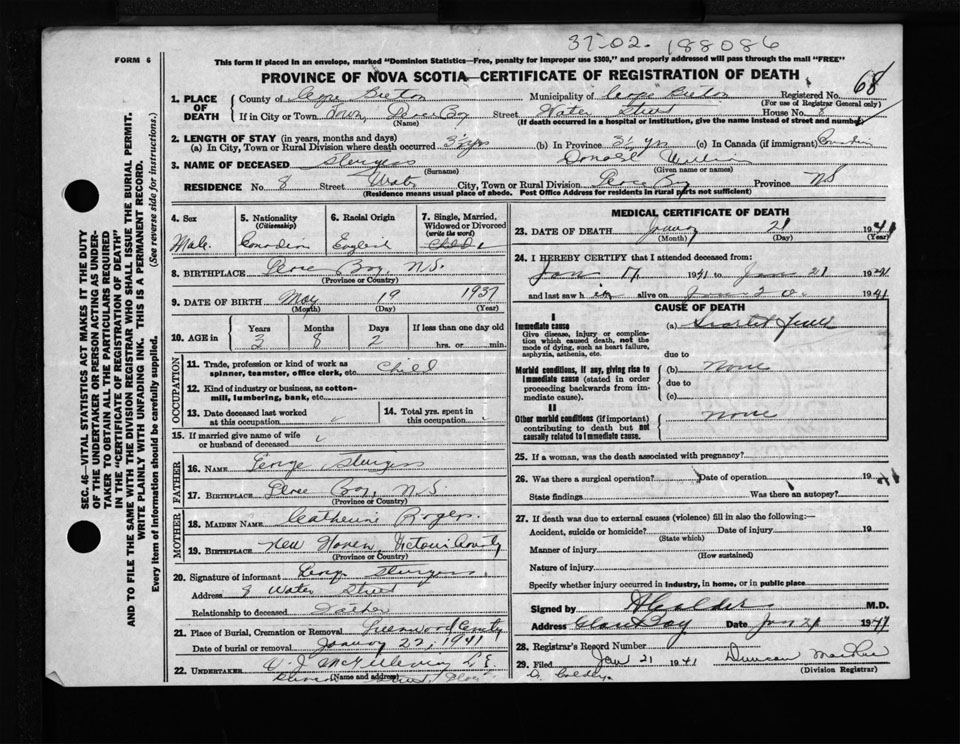 37-02. 188086
FORM 6
This form if placed in an envelope, marked "Dominion Statistics—Free, penalty for improper use $300," and properly addressed will pass through the mail "FREE"
PROVINCE OF NOVA SCOTIA—CERTIFICATE OF REGISTRATION OF DEATH
68
1. PLACE OF DEATH
County of Cape Breton Municipality of Cape Breton Registered No.
(For use of Registrar General only)
If in City or Town Street Water Street House No. 8
(Name) (If death occurred in a hospital or institution, give the name instead of street and number)
2. LENGTH OF STAY (in years, months and days)
(a) In City, Town or Rural Division where death occurred 3½ yrs (b) In Province 3½ yrs (c) In Canada (if immigrant)
3. NAME OF DECEASED Sturgess Donald William
(Surname) (Given name or names)
RESIDENCE No. 8 Street Water City, Town or Rural Division Province NS
(Residence means usual place of abode. Post Office Address for residents in rural parts not sufficient)
4. Sex Male
5. Nationality (Citizenship) Canadian
6. Racial Origin English
7. Single, Married, Widowed or Divorced (write the word) Child
8. BIRTHPLACE Bay, N.S.
(Province or Country)
9. DATE OF BIRTH May 19 1937
(Month) (Day) (Year)
10. AGE in Years 3 Months 8 Days 2 If less than one day old
hrs. or min.
OCCUPATION
11. Trade, profession or kind of work as spinner, teamster, office clerk, etc. Child
12. Kind of industry or business, as cotton-mill, lumbering, bank, etc.
13. Date deceased last worked at this occupation
14. Total yrs. spent in this occupation
15. If married give name of wife or husband of deceased
FATHER
16. Name George Sturgess
17. Birthplace Bay, N.S.
(Province or Country)
MOTHER
18. MAIDEN NAME Catherine Rogers
19. Birthplace New Haven, Victoria County
(Province or Country)
20. Signature of informant George Sturgess
Address 8 Water Street
Relationship to deceased Father
21. Place of Burial, Cremation or Removal Greenwood Cemetery
Date of burial or removal January 22, 1941
22. UNDERTAKER
(Name and address)
MEDICAL CERTIFICATE OF DEATH
23. DATE OF DEATH January 21 1941
(Month) (Day) (Year)
24. I HEREBY CERTIFY that I attended deceased from:
Jan 17 1941 to Jan 21 1941
and last saw him alive on Jan 20 1941
CAUSE OF DEATH
I
Immediate cause
Give disease, injury or complication which caused death, not the mode of dying, such as heart failure, asphyxia, asthenia, etc.
(a) Scarlet Fever
due to
Morbid conditions, if any, giving rise to immediate cause (stated in order proceeding backwards from immediate cause).
(b) None
due to
(c)
II
Other morbid conditions (if important) contributing to death but not causally related to immediate cause.
None
25. If a woman, was the death associated with pregnancy?
26. Was there a surgical operation? Date of operation 1941
State findings Was there an autopsy?
27. If death was due to external causes (violence) fill in also the following:—
Accident, suicide or homicide? Date of injury 19
(State which)
Manner of injury
(How sustained)
Nature of injury
Specify whether injury occurred in industry, in home, or in public place
Signed by A Calder M.D.
Address Glace Bay Date Jan 21 1941
28. Registrar's Record Number
29. Filed Jan 21 1941 Duncan
(Division Registrar)
SEC. 46—VITAL STATISTICS ACT MAKES IT THE DUTY
OF THE UNDERTAKER OR PERSON ACTING AS UNDER-
TAKER TO OBTAIN ALL THE PARTICULARS REQUIRED
IN THE "CERTIFICATE OF REGISTRATION OF DEATH"
AND TO FILE THE SAME WITH THE DIVISION REGISTRAR WHO SHALL ISSUE THE BURIAL PERMIT.
WRITE PLAINLY WITH UNFADING INK. THIS IS A PERMANENT RECORD.
Every item of information should be carefully supplied. (See reverse side for instructions.)